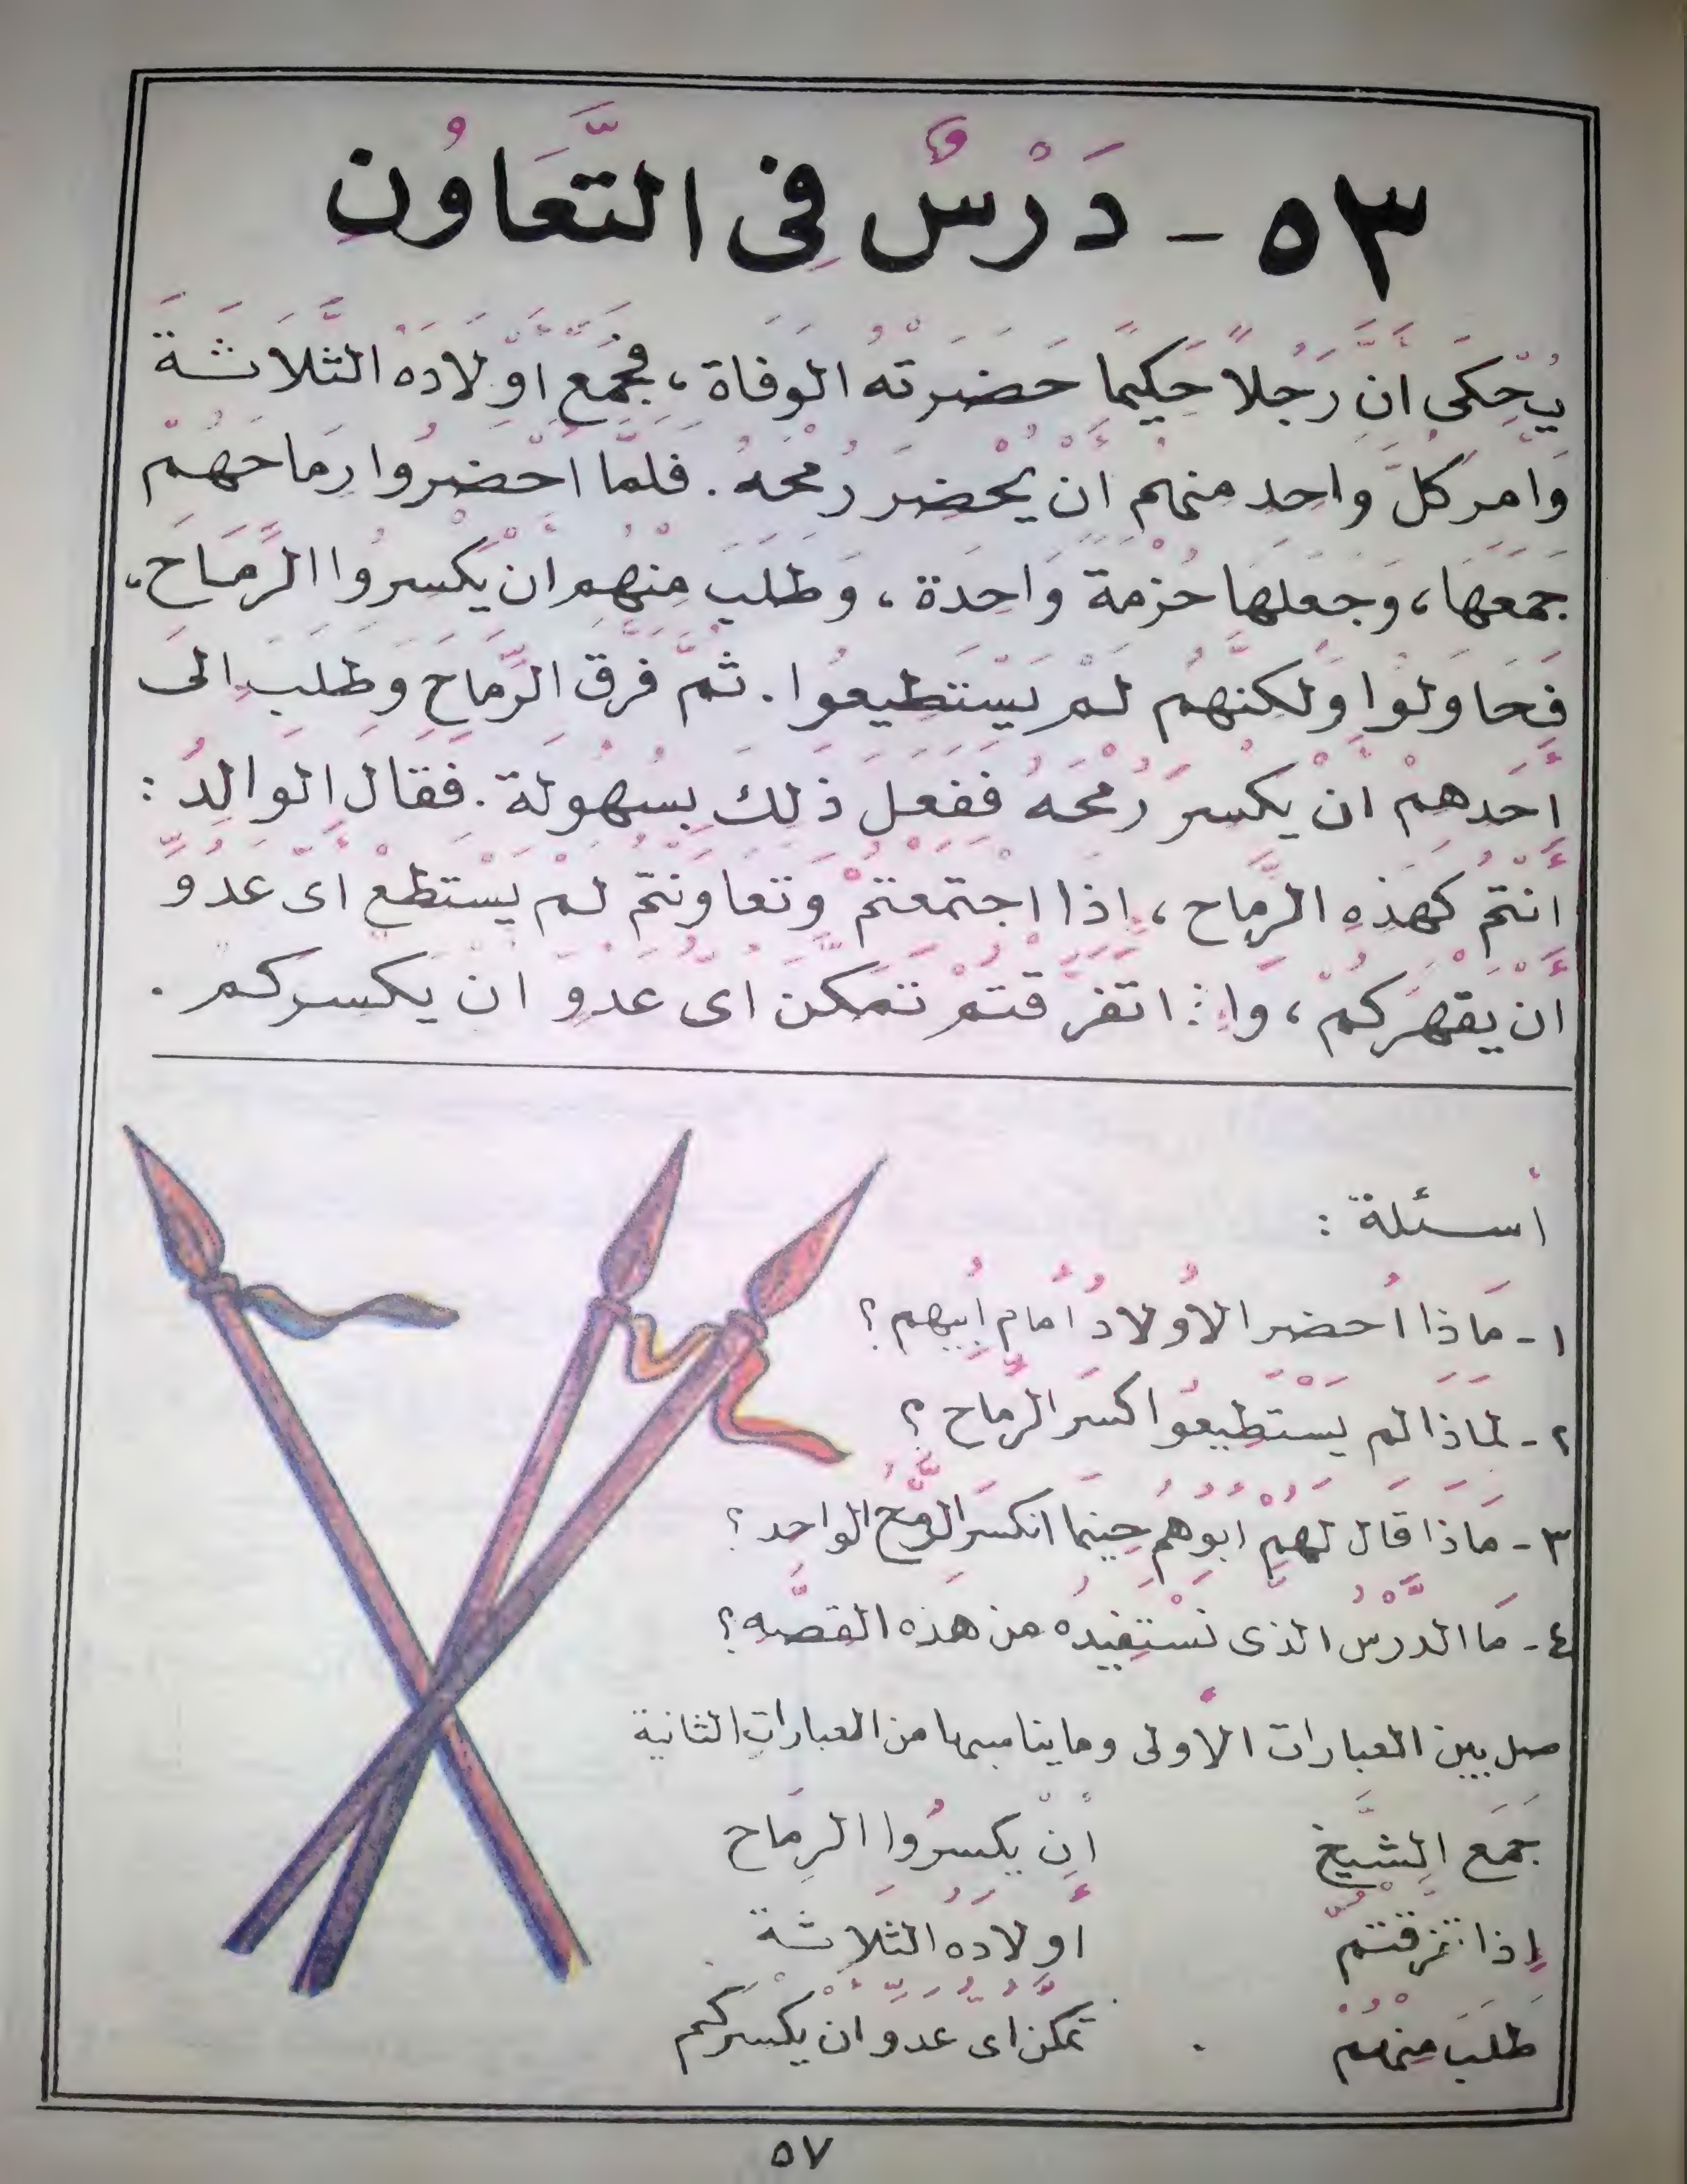 ٥٣ - دَرْسٌ فِى التَّعَاوُن
يُحْكَى أنَّ رَجُلاً حَكِيمًا حَضَرَتْهُ الوَفاة ، فجَمَعَ أوْلَادَهُ الثَّلَاثَةَ
وَأمَرَ كلَّ وَاحِدٍ منهم أنْ يُحْضِرَ رُمْحَهُ . فَلمَّا أحْضَرُوا رِمَاحَهُمْ
جَمَعَهَا ، وَجَعَلَهَا حُزْمَةً وَاحِدَة ، وَطَلَبَ مِنْهُم أنْ يَكْسِرُوا الرِّمَاحَ ،
فَحَاوَلُوا وَلَكِنَّهُم لَمْ يَسْتَطِيعُوا . ثُمَّ فَرَّقَ الرِّمَاحَ وَطَلَبَ إلى
أَحَدِهِمْ أنْ يكْسِرَ رُمْحَهُ فَفَعَلَ ذَلِكَ بِسُهُولَة . فَقَالَ الوَالِدُ :
أَنْتُمْ كَهَذِهِ الرِّمَاح ، إِذَا اجْتَمَعْتُمْ وَتَعَاوَنْتُمْ لَمْ يَسْتَطِعْ أىُّ عَدُوٍّ
أَنْ يَقْهَرَكُمْ ، وَإِذَا تَفَرَّقْتُمْ تَمَكَّنَ أىُّ عَدُوٍّ أنْ يَكْسِركُم .
أسئلة :
١ - مَاذا أحضر الأوْلادُ أمَام أبِيهِم ؟
٢ - لمَاذَا لَم يَسْتَطِيعُوا كَسْرَ الرِّمَاح ؟
٣ - مَاذَا قَالَ لَهُمْ أبُوهُمْ حِينَمَا انكسَرَ الرُّمْحُ الواحِد ؟
٤ - مَا الدَّرْسُ الذى نَسْتَفِيدُه من هَذِه القصَّه ؟
صل بين العبارات الأولى وما يناسبها من العبارات الثانية
جَمَعَ الشَّيْخُ أنْ يكسِرُوا الرِمَاح
إِذا تفرقتُم أَوْلَادَهُ الثَّلَاثَة
طَلَبَ مِنْهُمْ تمكَّن أىُّ عدوٍّ أنْ يكْسِركُم
٥٧